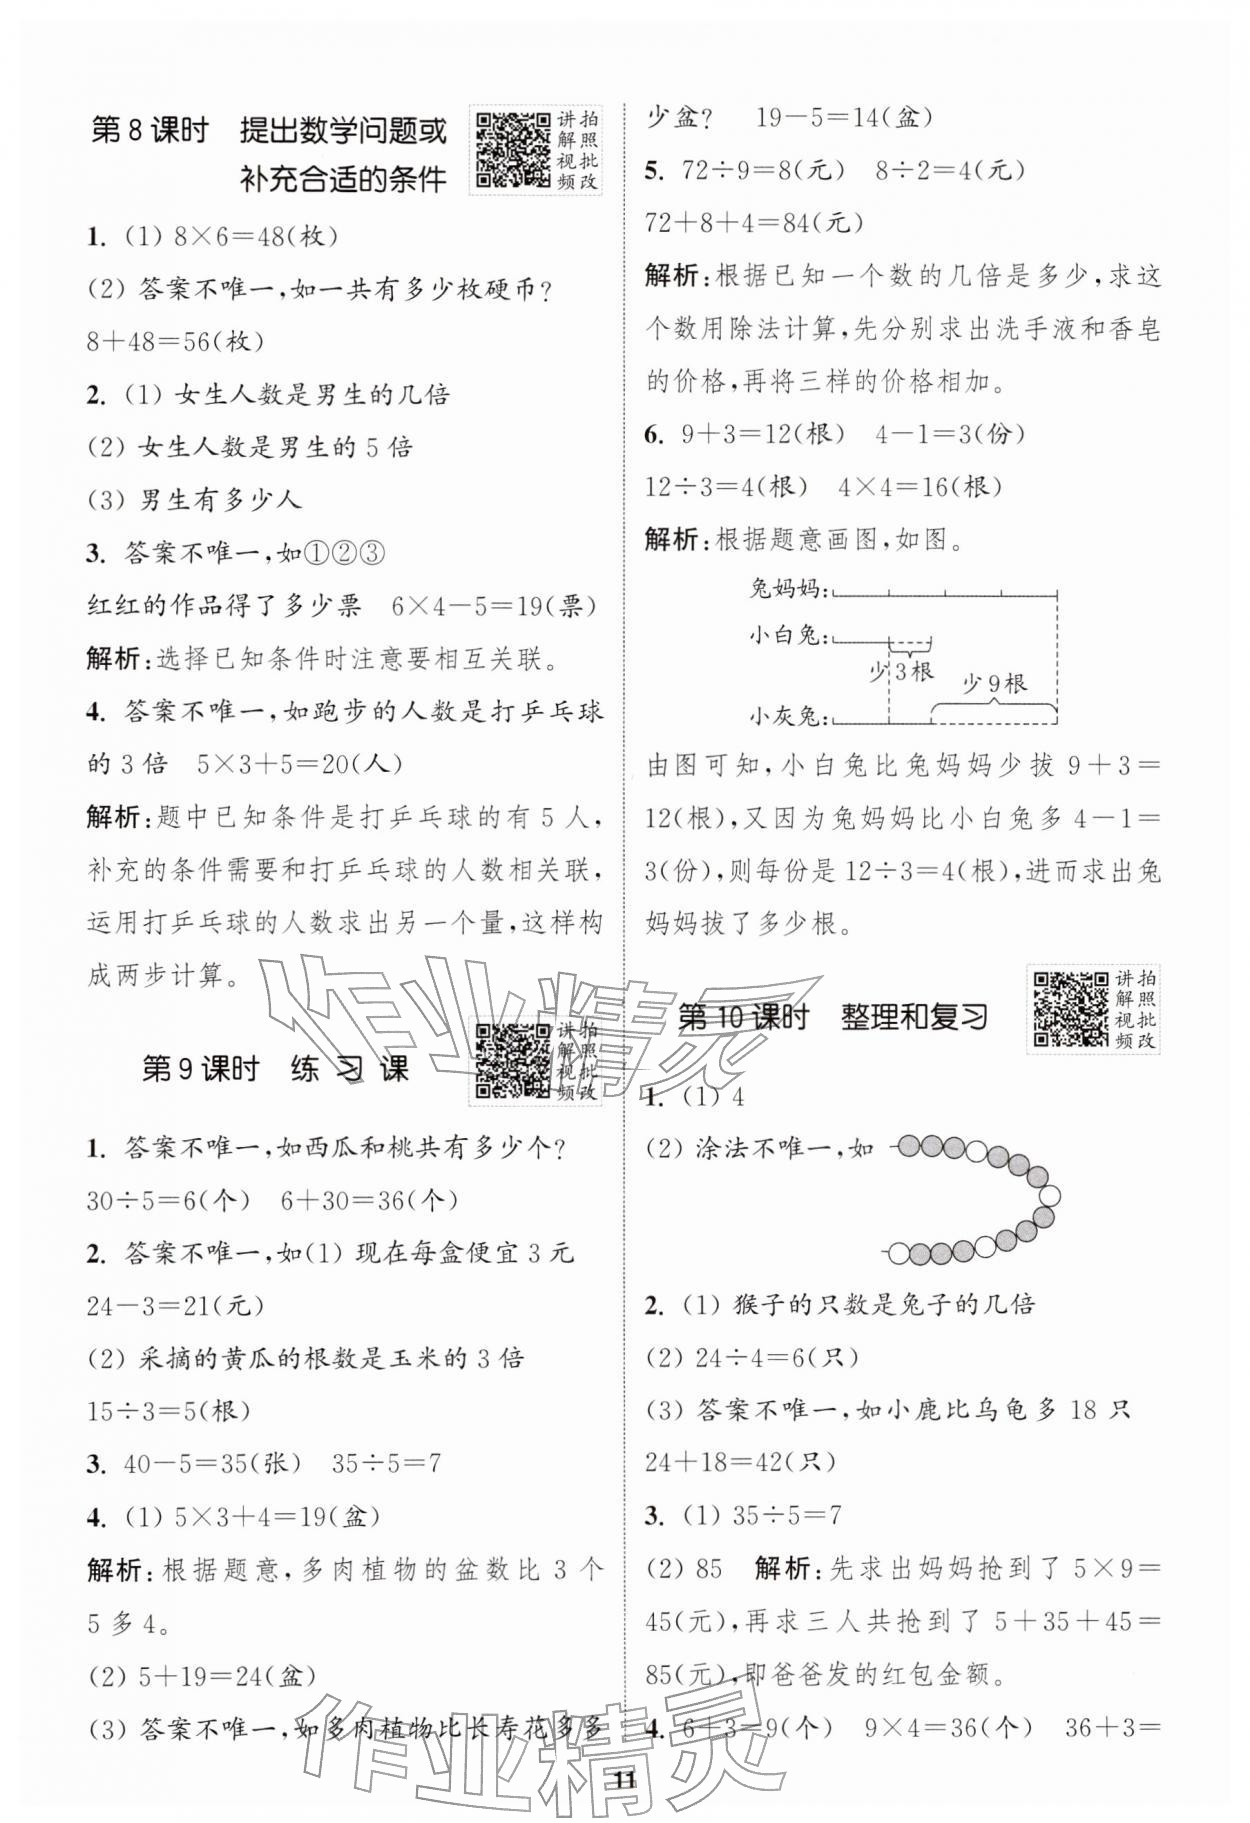 第8课时　提出数学问题或
补充合适的条件
讲拍
解照
视批
频改
1. (1) 8×6=48(枚)
(2) 答案不唯一,如一共有多少枚硬币?
8+48=56(枚)
2. (1) 女生人数是男生的几倍
(2) 女生人数是男生的5倍
(3) 男生有多少人
3. 答案不唯一,如①②③
红红的作品得了多少票　6×4-5=19(票)
解析:选择已知条件时注意要相互关联。
4. 答案不唯一,如跑步的人数是打乒乓球
的3倍　5×3+5=20(人)
解析:题中已知条件是打乒乓球的有5人,
补充的条件需要和打乒乓球的人数相关联,
运用打乒乓球的人数求出另一个量,这样构
成两步计算。
第9课时　练 习 课
讲拍
解照
视批
频改
1. 答案不唯一,如西瓜和桃共有多少个?
30÷5=6(个)　6+30=36(个)
2. 答案不唯一,如(1) 现在每盒便宜3元
24-3=21(元)
(2) 采摘的黄瓜的根数是玉米的3倍
15÷3=5(根)
3. 40-5=35(张)　35÷5=7
4. (1) 5×3+4=19(盆)
解析:根据题意,多肉植物的盆数比3个
5多4。
(2) 5+19=24(盆)
(3) 答案不唯一,如多肉植物比长寿花多多
少盆?　19-5=14(盆)
5. 72÷9=8(元)　8÷2=4(元)
72+8+4=84(元)
解析:根据已知一个数的几倍是多少,求这
个数用除法计算,先分别求出洗手液和香皂
的价格,再将三样的价格相加。
6. 9+3=12(根)　4-1=3(份)
12÷3=4(根)　4×4=16(根)
解析:根据题意画图,如图。
兔妈妈:
小白兔:
少3根
少9根
小灰兔:
由图可知,小白兔比兔妈妈少拔9+3=
12(根),又因为兔妈妈比小白兔多4-1=
3(份),则每份是12÷3=4(根),进而求出兔
妈妈拔了多少根。
第10课时　整理和复习
讲拍
解照
视批
频改
1. (1) 4
(2) 涂法不唯一,如
2. (1) 猴子的只数是兔子的几倍
(2) 24÷4=6(只)
(3) 答案不唯一,如小鹿比乌龟多18只
24+18=42(只)
3. (1) 35÷5=7
(2) 85　解析:先求出妈妈抢到了5×9=
45(元),再求三人共抢到了5+35+45=
85(元),即爸爸发的红包金额。
4. 6+3=9(个)　9×4=36(个)　36+3=
11
作业精灵
作业精灵